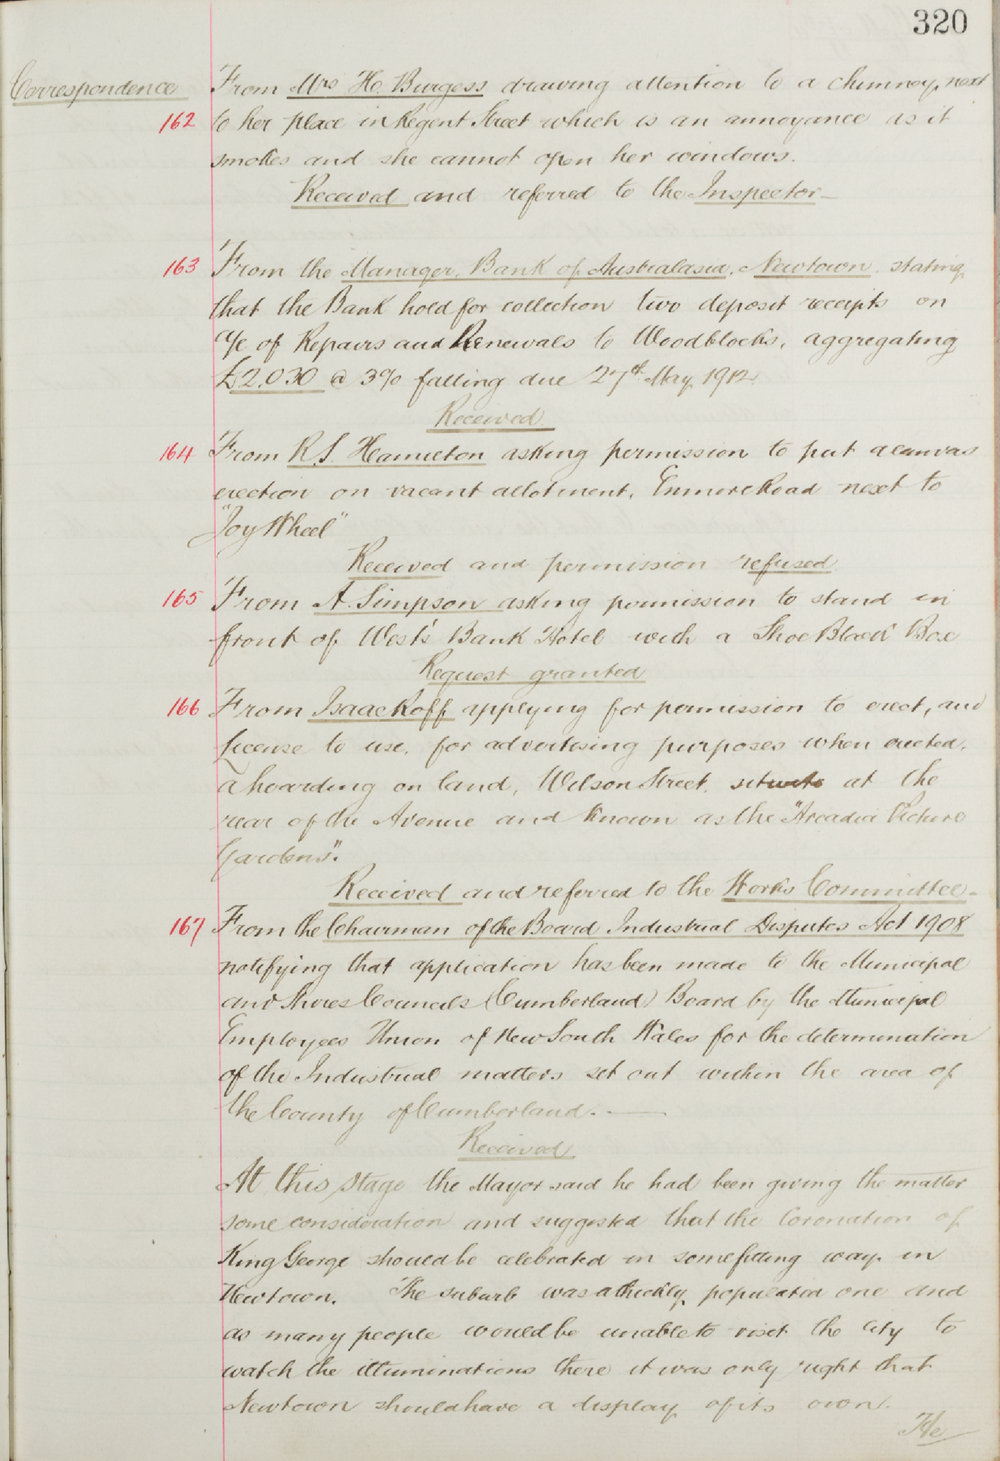 320
Correspondence
From Mrs H. Burgess drawing attention to a chimney, next
162 to her place in Regent Street which is an annoyance as it
smokes and she cannot open her windows.
Received and referred to the Inspector
163 From the Manager, Bank of Australasia, Newtown, stating
that the Bank hold for collection two deposit receipts on
a/c of Repairs and Renewals to Woodblocks, aggregating
£2,030 @ 3% falling due 27th May, 1912.
Received
164 From R. S. Hamilton asking permission to put a canvas
erection on vacant allotment, Enmore Road next to
"Joy Wheel"
Received and permission refused
165 From A. Simpson asking permission to stand in
front of West's Bank Hotel with a Shoe Black Box
Request granted
166 From Isaackoff applying for permission to erect, and
License to use, for advertising purposes when erected,
a hoarding on land, Wilson Street, situate at the
rear of the Avenue and known as the "Arcadia Picture
Gardens".
Received and referred to the Works Committee
167 From the Chairman of the Board Industrial Disputes Act 1908
notifying that application has been made to the Municipal
and Shires Councils (Cumberland) Board by the Municipal
Employees Union of New South Wales for the determination
of the Industrial matters set out within the area of
the County of Cumberland.
Received
At this stage the Mayor said he had been giving the matter
some consideration and suggested that the Coronation of
King George should be celebrated in some fitting way in
Newtown. The suburb was a thickly populated one and
as many people would be unable to visit the City to
watch the illuminations there it was only right that
Newtown should have a display of its own.
He